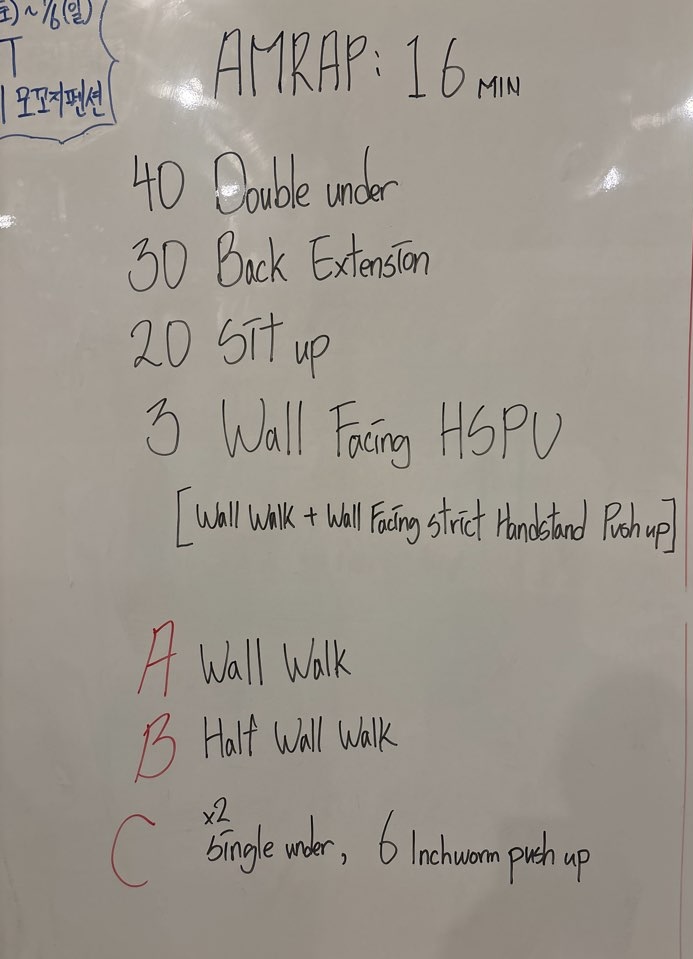 ~ 1/6(일)
T
모꼬지펜션
AMRAP: 16 MIN
40 Double under
30 Back Extension
20 Sit up
3 Wall Facing HSPU
[Wall Walk + Wall Facing strict Handstand Push up]
A Wall Walk
B Half Wall Walk
C x2 Single under, 6 Inchworm push up